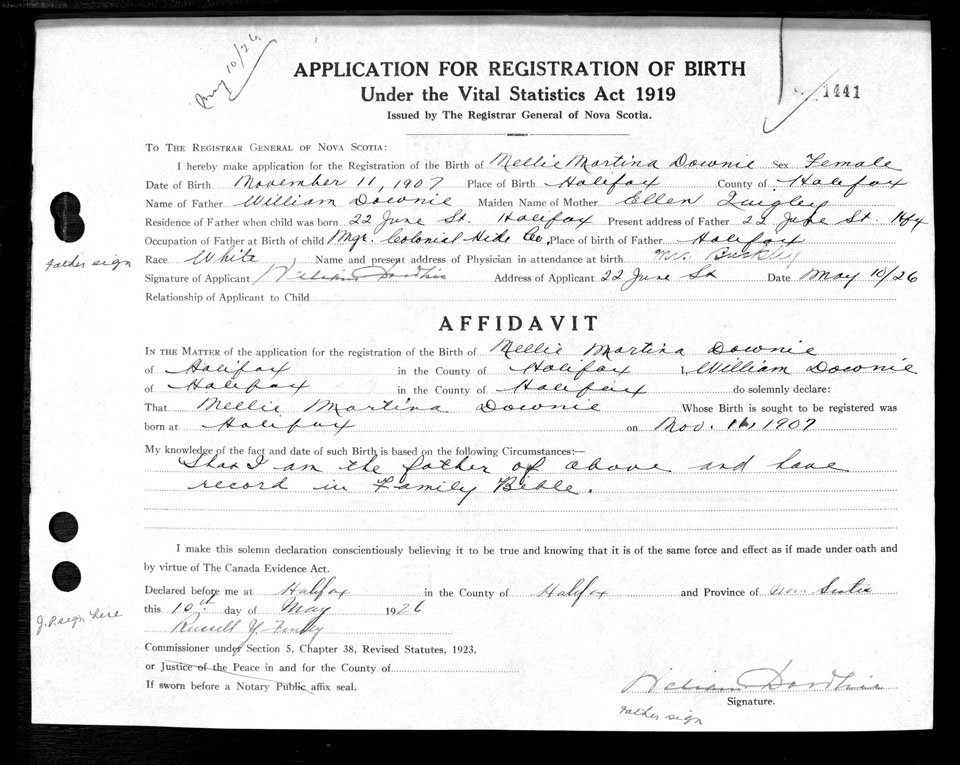 May 10/26
1441
APPLICATION FOR REGISTRATION OF BIRTH
Under the Vital Statistics Act 1919
Issued by The Registrar General of Nova Scotia.
TO THE REGISTRAR GENERAL OF NOVA SCOTIA:
I hereby make application for the Registration of the Birth of Mellie Martina Downie Sex Female
Date of Birth November 11, 1907 Place of Birth Halifax County of Halifax
Name of Father William Downie Maiden Name of Mother Ellen Quigley
Residence of Father when child was born 22 June St. Halifax Present address of Father 22 June St Hfx
Occupation of Father at Birth of child Mgr. Colonial Hide Co, Place of birth of Father Halifax
Father sign
Race White, Name and present address of Physician in attendance at birth
Signature of Applicant William Address of Applicant 22 June St Date May 10/26
Relationship of Applicant to Child
AFFIDAVIT
IN THE MATTER of the application for the registration of the Birth of Mellie Martina Downie
of Halifax in the County of Halifax I, William Downie
of Halifax in the County of Halifax do solemnly declare:
That Mellie Martina Downie Whose Birth is sought to be registered was
born at Halifax on Nov. 11, 1907
My knowledge of the fact and date of such Birth is based on the following Circumstances:—
That I am the father of above and have
record in Family Bible.
I make this solemn declaration conscientiously believing it to be true and knowing that it is of the same force and effect as if made under oath and
by virtue of The Canada Evidence Act.
Declared before me at Halifax in the County of Halifax and Province of Nova Scotia
this 10th day of May 1926
J.P. sign here
Russell
Commissioner under Section 5, Chapter 38, Revised Statutes, 1923,
or Justice of the Peace in and for the County of
If sworn before a Notary Public affix seal.
William
Signature.
Father sign